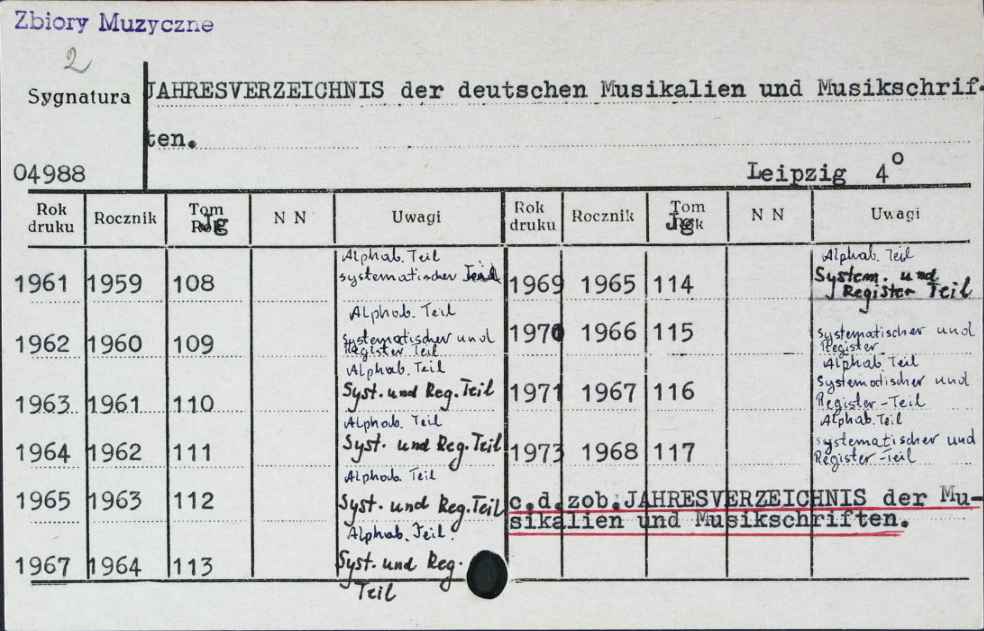 Zbiory Muzyczne
2
Sygnatura
JAHRESVERZEICHNIS der deutschen Musikalien und Musikschrif-
ten.
04988
Leipzig 4°
Rok druku Rocznik Tom Jg N N Uwagi
Rok druku Rocznik Tom Jg N N Uwagi
Alphab. Teil
1961 1959 108 systematischer Teil
Alphab. Teil
1962 1960 109 systematischer und
Register Teil
Alphab. Teil
1963 1961 110 Syst. und Reg. Teil
Alphab. Teil
1964 1962 111 Syst. und Reg. Teil
Alphab. Teil
1965 1963 112 Syst. und Reg. Teil
Alphab. Teil.
1967 1964 113 Syst. und Reg.
Teil
Alphab. Teil
1969 1965 114 System. und
Register Teil
1970 1966 115 systematischer und
Register
Alphab. Teil
1971 1967 116 Systematischer und
Register-Teil
Alphab. Teil
1973 1968 117 systematischer und
Register-Teil
c.d.zob.JAHRESVERZEICHNIS der Mu-
sikalien und Musikschriften.